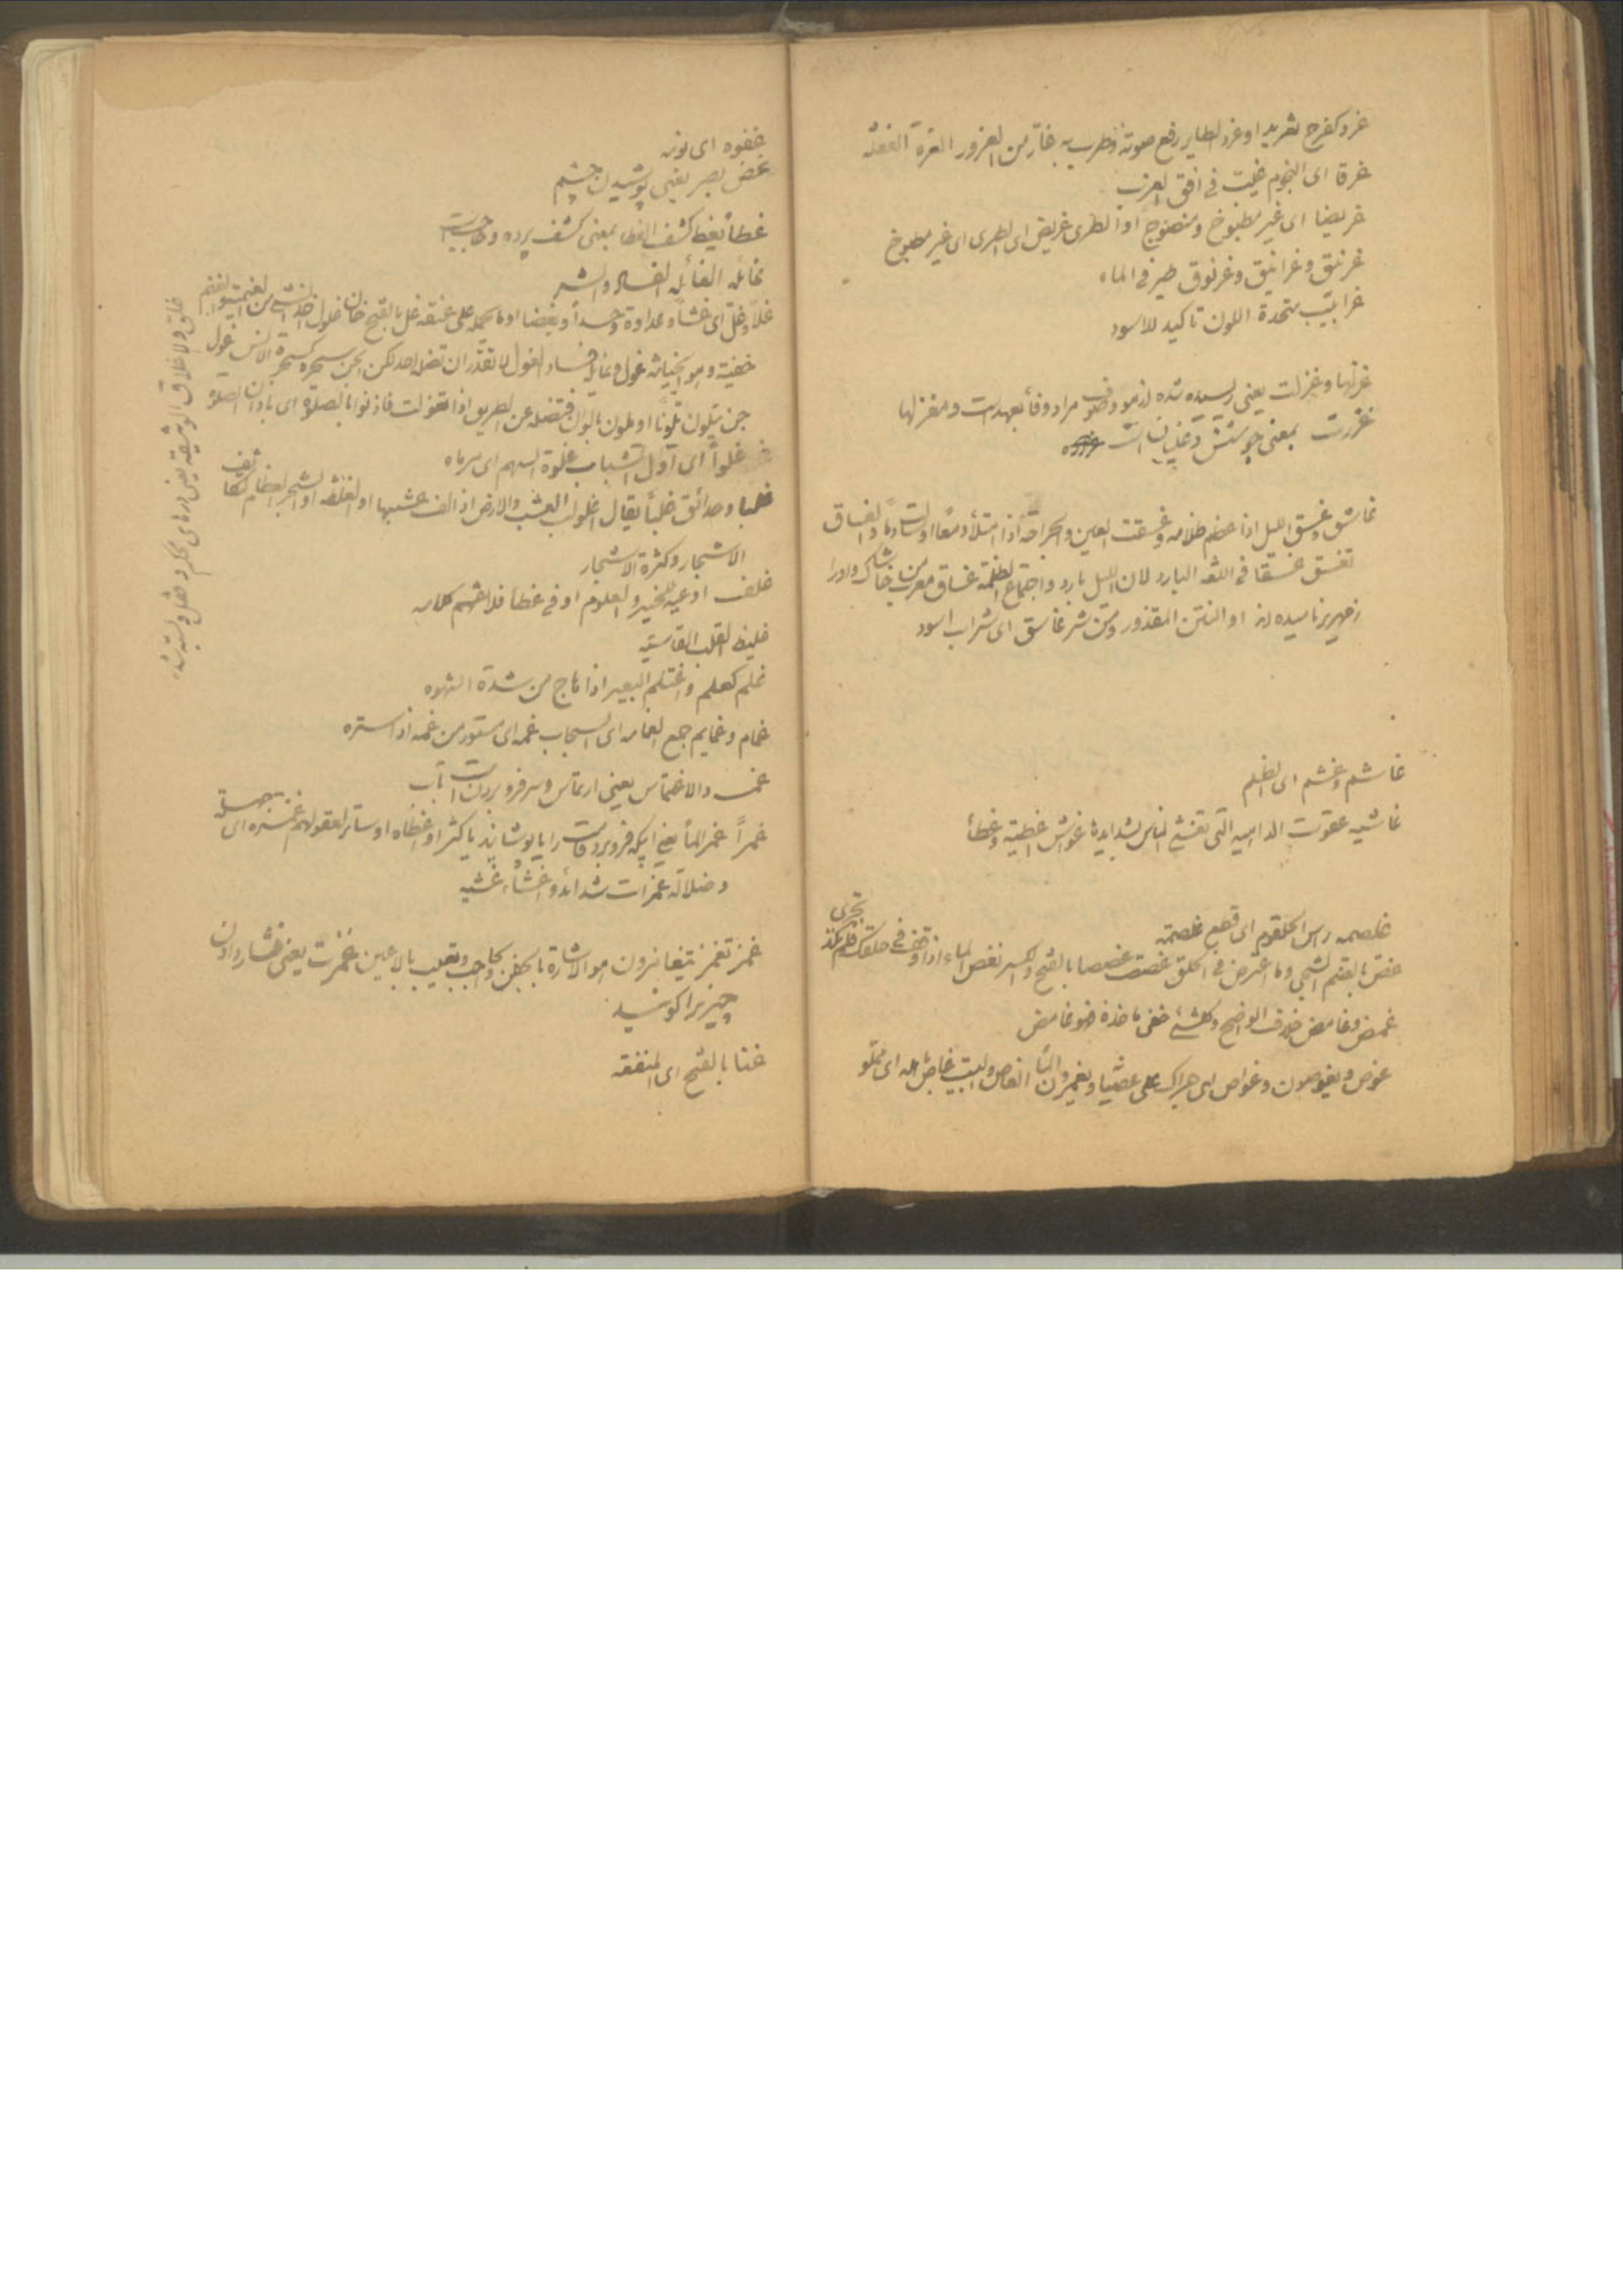 غرد کفرح تغرید او غرد الطایر رفع صوته و طرب به غار من الغرور الغرة الغفلة
غرقا ای النجوم غیبت فی افق الغرب
غریضا ای غیر مطبوخ و منضوج او الطری غریض ای الطری ای غیر مطبوخ
غرنیق و غرانیق و غرنوق طیر فی الماء
غرابیب متحدة اللون تاکید للاسود
غزلها و غزلت یعنی ریسیده شده از مو و صوف مراد وفا بعهد است و مغزلها
غزرت بمعنی جوشش و غلیان است
غاسق و غسق اللیل اذا عظم ظلامه و غسقت العین و الجراحة اذا امتلأ دمعا او سالت دما و الغساق
تغسق غسقا فی اللغة البارد لان اللیل بارد و اجتماع الظلمة غساق معرب من خاشاک و او را
زمهریر نامیده اند او النتن المقذور و من شر غاسق ای شراب اسود
غاشم و غشم ای الظلم
غاشیه عقوبت الداهیه التی تغشی الناس بشدایدها غواش اغطیة و غطأ
غلصمه راس الحلقوم ای قطع غلصمته
غصص بالضم الشجی و ما اعترض فی الحلق غصصت غصصا بالفتح و الکسر تغص الماء اذا وقف فی حلقک فلم تکد تجری
غمض و غامض خلاف الواضح و کلشئ خفی ماخذه فهو غامض
غوص و یغوصون و غواص
خفوه ای نومه
غض بصر یعنی پوشیدن چشم
غطأ یغط کشف الغطا بمعنی کشف پرده و حاجب است
غائله الغائله الفساد و الشر
غلا و غل ای غشا و عداوة و حسدا و بغضا او ما یحمله علی عنقه غل بالفتح خان غلول اخذ الشئ من الغنیمة
خفیة و هو الخیانة غول و غائله فساد الغول لا تقدر ان تضل احد لکن الجن سحرة کسحرة الانس غول
جن یتلون تلونا او یلون بالوان فتضله عن الطریق اذا تغولت فاذنوا بالصلوة ای باذان الصلوة
غلوا ای اول الشباب غلوة السهم ای سرماه
غلبا و حدائق غلبا یقال اغلولب العشب و الارض اذا التف عشبها او الغلظه او الشجر العظام لتکاثف
الاشجار و کثرة الاشجار
غلف اوعیة للخیر و العلوم او فی غطأ فلا تفهم کلامه
غلیظ القلب القاسیة
غلم کعلم و اغتلم البعیر اذا هاج من شدة الشهوه
غمام و غمایم جمع الغمامه ای السحاب غمه ای مستور من غمه اذا ستره
غمس و الاغتماس یعنی ارتماس و سر فرو بردن است بآب
غمرا غمر المأ یعنی اینکه فرو برد قامت را یا پوشاند یا کثر او غطاه او ساتر لعقولهم غمرة ای
و ضلالة غمرات شدائد و غشأ غشیه
غمز تغمز یتغامزون هو الاشارة بالجفن و حاجب و تقلیب بالاعین غمزت یعنی فشار دادن
چیزیرا کویند
غنا بالفتح ای المنفعة